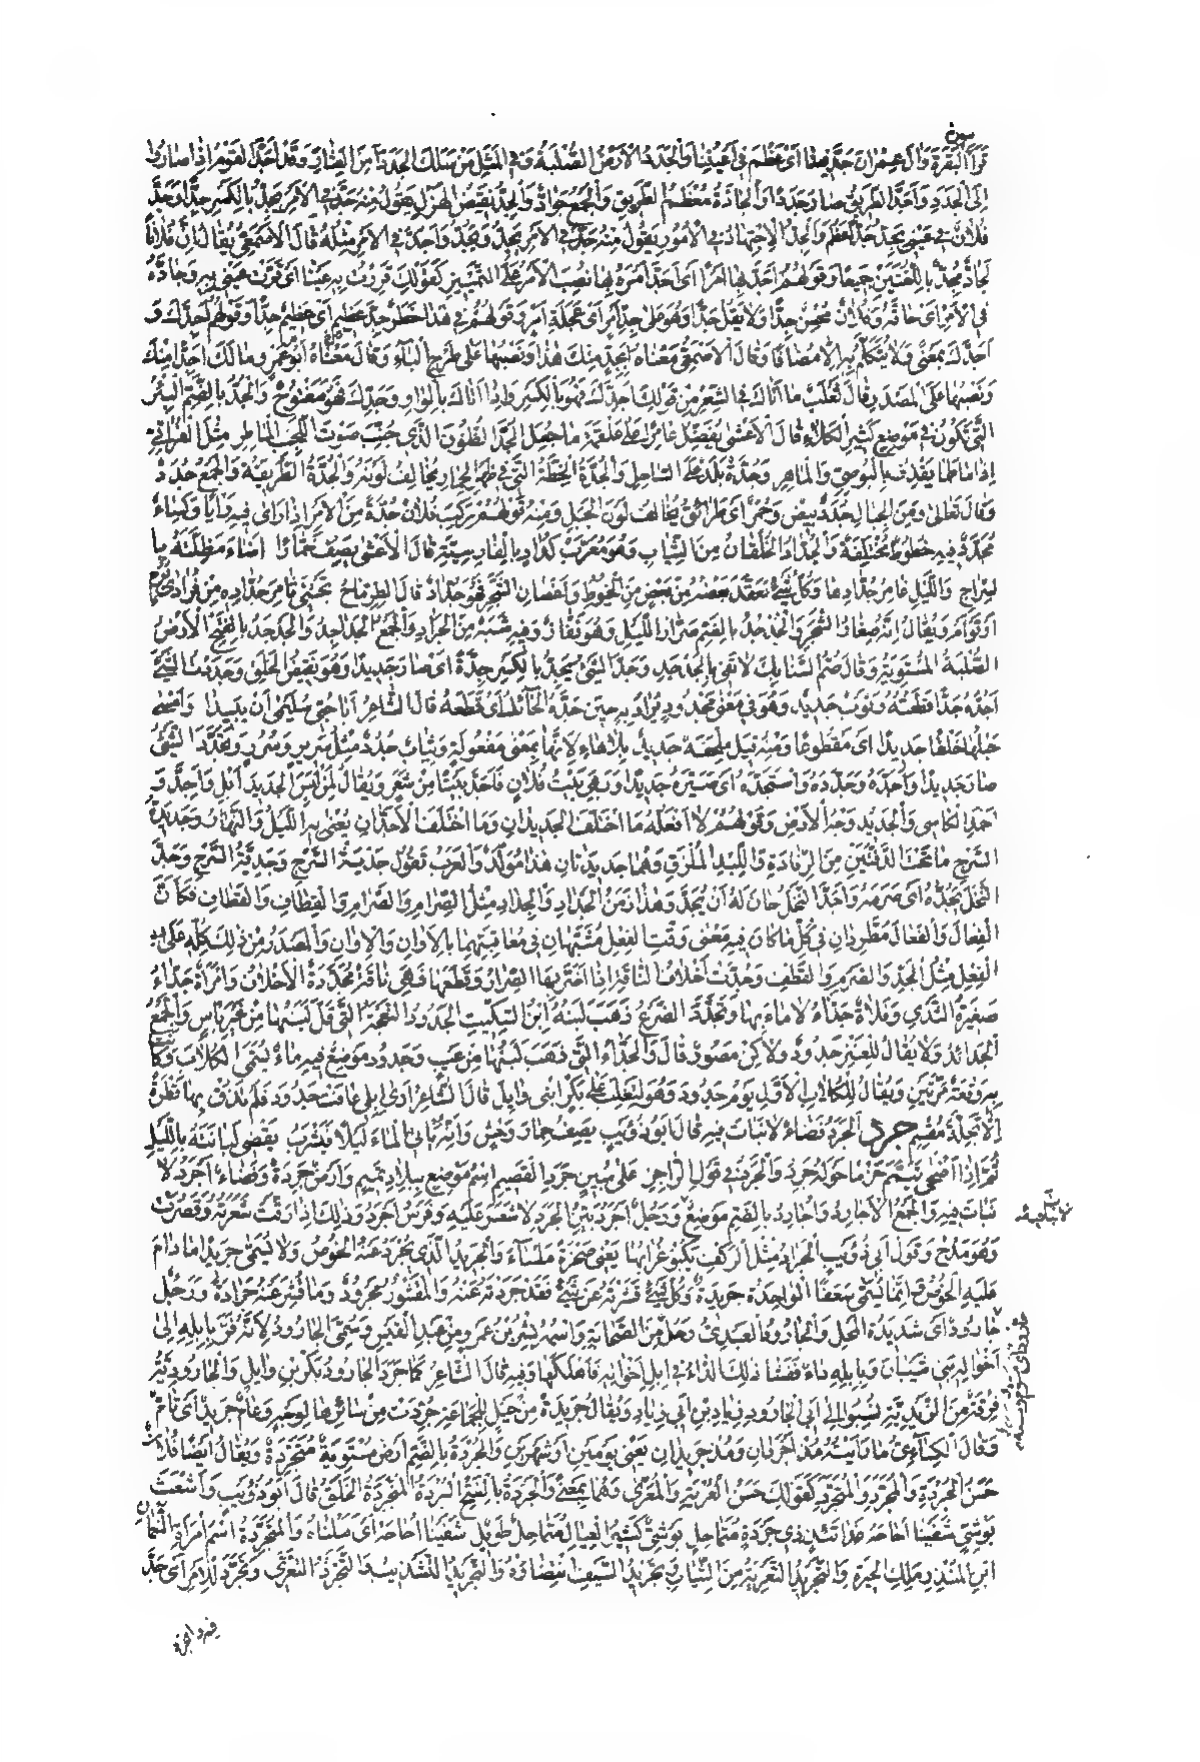 سورة
قرأ البقرة وآل عمران جد فينا اى عظم فى أعيننا والجدد الأرض الصلبة وفى المثل من سلك الجدد أمن العثار وقد أجد القوم اذا صاروا
الى الجدد وأجد الطريق صار جددا والجادة معظم الطريق والجمع جواد والجد نقيض الهزل يقول منه جد فى الأمر يجد بالكسر جدا وجد
فلان فى عينى يجد جدا عظم والجد الاجتهاد فى الأمور يقول منه جد فى الأمر يجد ويجد وأجد فى الأمر مثله قال الأصمعى يقال ان فلانا
لجاد مجد باللغتين جميعا وقولهم أجد بها أمرا اى أجد أمره بها نصب الأمر على التمييز كقولك قررت به عينا اى قرت عينى به وجاده
فى الأمر اى حاقه وفلان محسن جدا ولا تقل جدا وهو على جد أمر اى عجلة أمر وقولهم فى هذا خطر جد عظيم اى عظيم جدا وقولهم أجدك و
أجدك بمعنى ولا يتكلم به الا مضافا وقال الأصمعى معناه أبجد منك هذا ونصبها على طرح الباء وقال معناه ابو عمرو ما لك أجدا منك
ونصبها على المصدر قال ثعلب ما أتاك فى الشعر من قولك أجدك فهو بالكسر واذا أتاك بالواو وجدك فهو مفتوح والجد بالضم البئر
التى تكون فى موضع كثير الكلأ قال الأعشى يفضل عامرا على علقمة ما جعل الجد الظنون الذى جنب صوت اللجب الماطر مثل الفراتى
اذا ما طما يقذف بالبوصى والماهر وجدة بلد على الساحل والجدة الخطة التى فى ظهر الحمار يخالف لونه والجدة الطريقة والجمع جدد
وقال تعالى ومن الجبال جدد بيض وحمر اى طرائق يخالف لون الجبل ومنه قولهم ركب فلان جدة من الأمر اذا راى فيه رأيا وكساء
مجدد فيه خطوط مختلفة والجداد الخلقان من الثياب وهو معرب كداد بالفارسية قال الأعشى يصف خمارا أضاء مظلته با
لسراج والليل غامر جدادها وكل شئ تعقد بعضه من بعض من الخيوط وأغصان الشجر فهو جداد قال الطرماح تجتنى ثامر جداده من فرادى
او توأم ويقال انه صغار الشجر والجدجد بالضم صرار الليل وهو قفاز وفيه شبه من الجراد والجمع الجداجد والجدجد بالفتح الأرض
الصلبة المستوية وقال صم السنابك لا تقى بالجدجد وجد الشئ يجد بالكسر جدة اى صار جديدا وهو نقيض الخلق وجددت الشئ
أجده جدا قطعته وثوب جديد وهو فى معنى مجدود يراد به حين جده الحائك اى قطعه قال الشاعر أبا حبى سليمى أن يبيدا وأضحى
حبلها خلقا جديدا اى مقطوعا ومنه قيل ملحفة جديد بلا هاء لانها بمعنى مفعولة وثياب جدد مثل سرير وسرر وتجدد الشئ
صار جديدا وأجده وجدده واستجده اى صيره جديدا وبهى بيت فلان فأجد بيتا من شعر ويقال لمن لبس الجديد أبل وأجد و
احمد الكاسى والجديد وجه الأرض وقولهم لا أفعله ما اختلف الجديدان وما اختلف الأجدان يعنى به الليل والنهار وجديدة
السرج ما تحت الدفتين من الرفادة واللبد الملزق وهما جديدتان هذا مولد والعرب تقول جدية السرج وجدية السرج وجد
النخل يجده اى صرمه وأجد النخل حان له أن يجد وهذا زمن الجداد والجداد مثل الصرام والصرام والقطاف والقطاف فكأن
الفعال والفعال مطردان فى كل ما كان فيه معنى وقت الفعل مشبهان فى معاقبتهما بالأوان والاوان والمصدر من ذلك كله على
الفعل مثل الجد والصرم والقطف وجدت أخلاف الناقة اذا أضر بها الصرار وقطعها فهى ناقة مجددة الأخلاف وامرأة جداء
صغيرة الثدى وفلاة جداء لا ماء بها وتجدد الضرع ذهب لبنه ابن السكيت الجدود النعجة التى قل لبنها من غير بأس والجمع
الجدائد ولا يقال للعنز جدود ولكن مصور قال والجداء التى ذهب لبنها من عيب وجدود موضع فيه ماء يسمى الكلاب وكا
به وقعة مرتين ويقال للكلاب الأول يوم جدود وهو لتغلب على بكر بن وائل قال الشاعر أرى ابلى عافت جدود فلم تذق بها قطرة
الا تحلة مقسم جرد الجرد فضاء لا نبات فيه قال ابو ذؤيب يصف حمارا وحش وأنه يأتى الماء ليلا فيشرب يقضى لبانته بالليل
ثم اذا أضحى تيمم حزما حوله جرد والجرد فى قول الراجز على مبين جرد القصيم اسم موضع ببلاد تميم وأرض جردة وفضاء أجرد لا
نبات فيه والجمع الأجارد وأجارد بالضم موضع ورجل أجرد بين الجرد لا شعر عليه وفرس أجرد وذلك اذا رقت شعرته وقصرت
لا نبات فيه
وهو مدح وقول ابى ذؤيب الجراد مثل الركف يكبو غرابها يعنى صخرة ملساء والجريد الذى يجرد عنه الخوص ولا يسمى جريدا ما دام
عليه الخوص وانما يسمى سعفا الواحدة جريدة وكل شئ قشرته عن شئ فقد جردته عنه والمقشور مجرود وما قشر عنه جرادة ورجل
جارود اى شديدة المحل والجارود العبدى رجل من الصحابة واسمه بشر بن عمرو من عبد القيس وسمى الجارود لأنه فر بابله الى
أخواله بنى شيبان وبابله داء ففشا ذلك الداء فى ابل أخواله فأهلكها وفيه قال الشاعر كما جرد الجارود بكر بن وائل والجارودية
فرقة من الزيدية نسبوا الى ابى الجارود زياد بن ابى زياد ويقال جريدة من خيل للجماعة جردت من سائرها لوجه وعام جريد اى تام
وقال الكسائى ما رأيته مذ أجردان ومذ جريدان يعنى يومين او شهرين والجردة بالضم أرض مستوية متجردة ويقال ايضا فلان
حسن الجردة والمجرد والمتجرد كقولك حسن العرية والمعرى وهما بمعنى والجردة بالفتح البردة المنجردة الخلق قال ابو ذؤيب وأشعث
بوشى شفينا أحاحه غداتئذ فى جردة متماحل بوشى كثير العيال متماحل طويل شفينا أحاحه اى سلناه والمتجردة اسم امرأة النعمان
ابن المنذر ملك الحيرة والتجريد التعرية من الثياب وتجريد السيف انتضاؤه والتجريد التشذيب والتجرد التعرى وتجرد للأمر اى جد